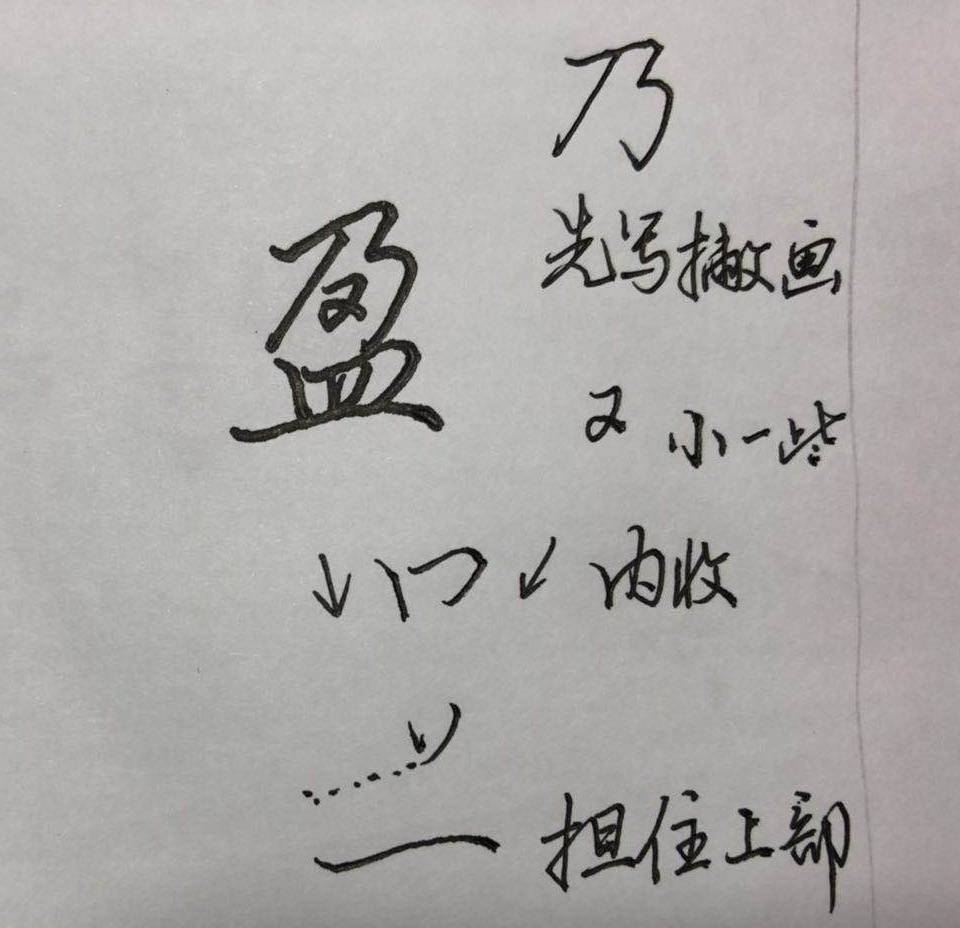 乃
盈
先写撇画
又 小一些
内收
担住上部